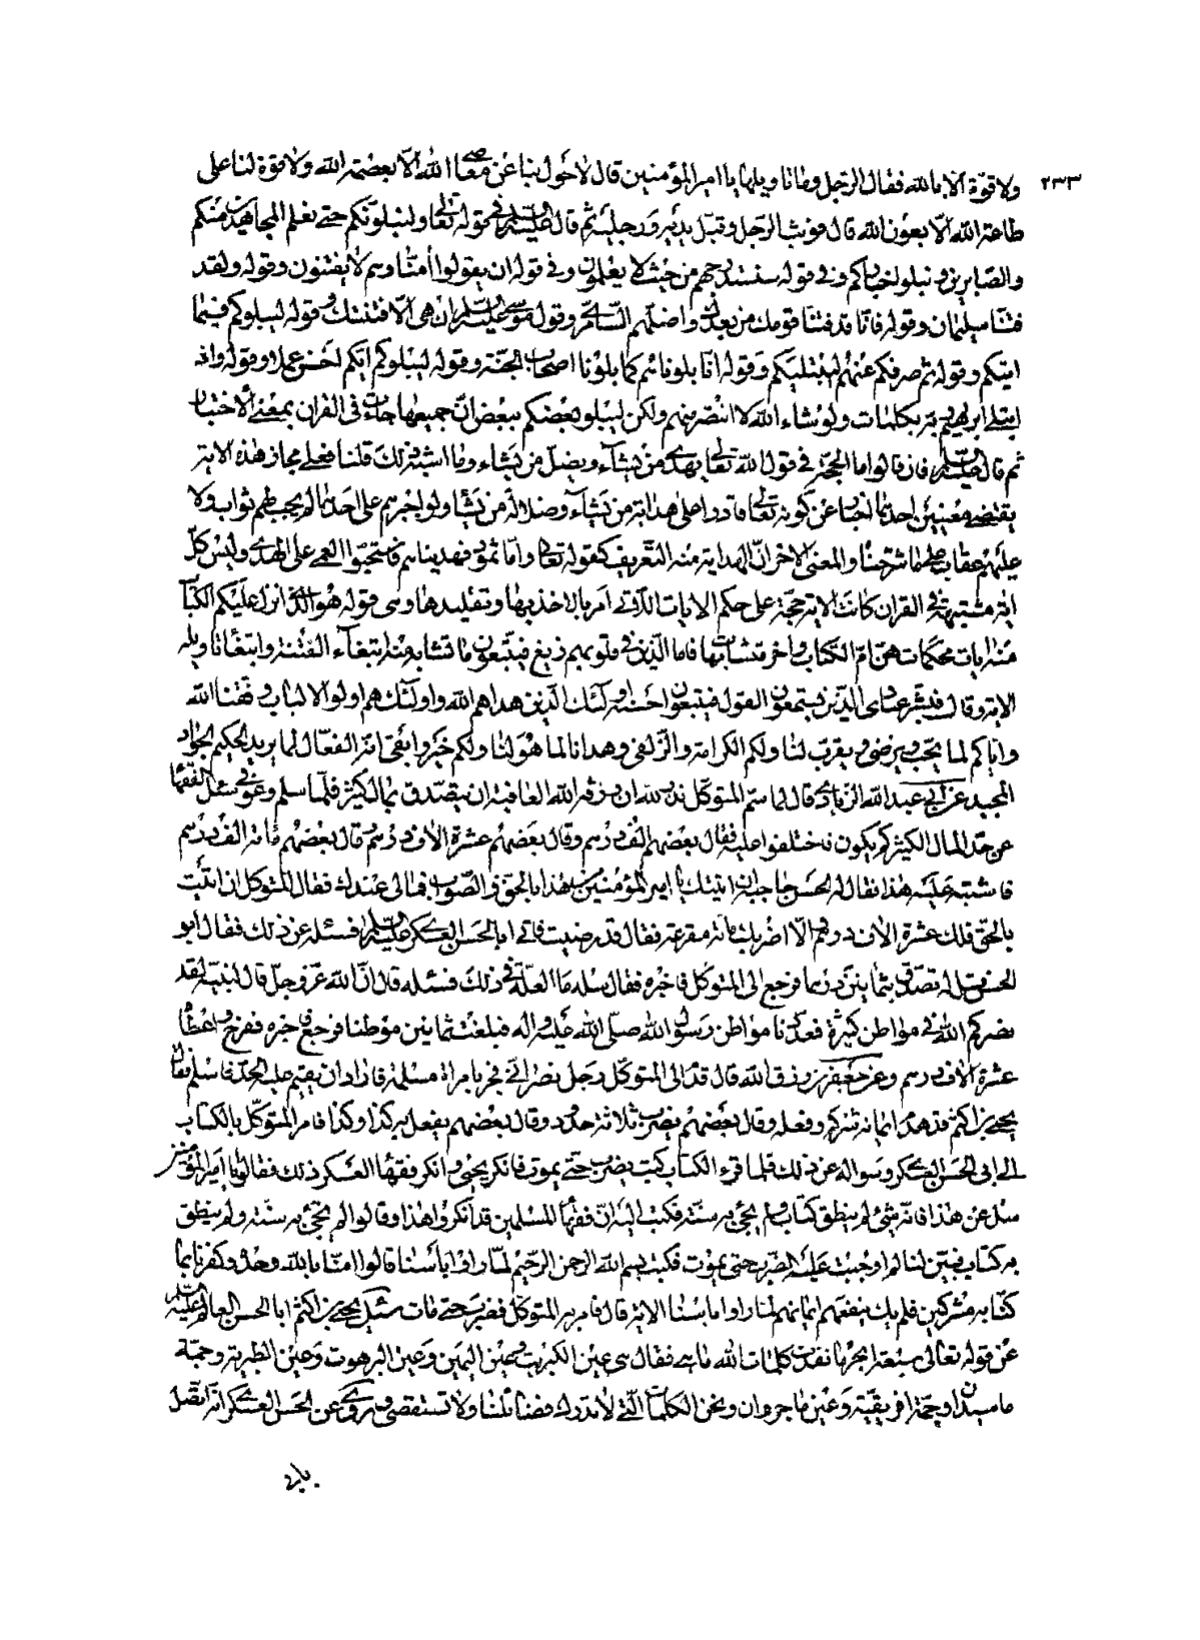 ٢٣٣
ولا قوة الا بالله فقال الرجل وما تاويلها يا امير المؤمنين قال لا حول بنا عن معاصي الله الا بعصمة الله ولا قوة لنا على
طاعة الله الا بعون الله قال فوثب الرجل وقبل يديه ورجليه ثم قال عليه السلم في قوله تعالى ولنبلونكم حتى نعلم المجاهدين منكم
والصابرين ونبلو اخباركم وفي قوله سنستدرجهم من حيث لا يعلمون وفي قوله ان يقولوا امنا وهم لا يفتنون وقوله ولقد
فتنا سليمان وقوله فانا قد فتنا قومك من بعدك واضلهم السامري وقول موسى عليه السلم ان هي الا فتنتك وقوله ليبلوكم فيما
اتيكم وقوله ثم صرفكم عنهم ليبتليكم وقوله انا بلوناهم كما بلونا اصحاب الجنة وقوله ليبلوكم ايكم احسن عملا وقوله واذ
ابتلى ابرهيم ربه بكلمات ولو شاء الله لا انتصر منهم ولكن ليبلو بعضكم ببعض ان جميعها جاءت في القران بمعنى الاختبار
ثم قال عليه السلم فان قالوا ما الحجة في قول الله تعالى يهدي من يشاء ويضل من يشاء وما اشبه ذلك قلنا فعلى مجاز هذه الاية
يقتضي معنيين احدهما اخبار عن كونه تعالى قادرا على هداية من يشاء وضلالة من يشاء ولو اجبرهم على احدهما لم يجب لهم ثواب ولا
عليهم عقاب على ما شرحنا والمعنى الاخر ان الهداية منه التعريف كقوله تعالى واما ثمود فهديناهم فاستحبوا العمى على الهدى وليس كل
اية مشتبهة في القران كانت الاية حجة على حكم الايات اللاتي امر بالاخذ بها وتقليدها وهي قوله هو الذي انزل عليكم الكتاب
منه ايات محكمات هن ام الكتاب واخر متشابهات فاما الذين في قلوبهم زيغ فيتبعون ما تشابه منه ابتغاء الفتنة وابتغاء تاويله
الاية وقال فبشر عبادي الذين يستمعون القول فيتبعون احسنه اولئك الذين هداهم الله واولئك هم اولو الالباب وفقنا الله
واياكم لما يحب ويرضى ويقرب لنا ولكم الكرامة والزلفى وهدانا لما هو لنا ولكم خير وابقى انه الفعال لما يريد الحكيم الجواد
المجيد عن ابي عبد الله الزيادي قال لما سم المتوكل نذر لله ان يرزقه الله العافية ان يتصدق بمال كثير فلما سلم وعوفي سئل الفقهاء
عن حد المال الكثير كم يكون فاختلفوا عليه فقال بعضهم الف درهم وقال بعضهم عشرة الاف درهم قال بعضهم مائة الف درهم
فاشتبه عليه هذا فقال له الحسن حاجبه ان اتيتك يا امير المؤمنين بهذا بالحق والصواب فمالي عندك فقال المتوكل ان اتيت
بالحق فلك عشرة الاف درهم والا اضربك مائة مقرعة فقال قد رضيت فاتى ابا الحسن العسكري عليه السلم فسئله عن ذلك فقال ابو
الحسن قل له تصدق بثمانين درهما فرجع الى المتوكل فاخبره فقال سله ما العلة في ذلك فسئله قال ان الله عز وجل قال لنبيه لقد
نصركم الله في مواطن كثيرة فعددنا مواطن رسول الله صلى الله عليه واله فبلغت ثمانين موطنا فرجع اخبره ففرح واعطاه
عشرة الاف درهم وعن جعفر بن رزق الله قال قدم الى المتوكل رجل نصراني فجر بامراة مسلمة فاراد ان يقيم عليه الحد فاسلم فقال
يحيى بن اكثم قد هدم ايمانه شركه وفعله وقال بعضهم يضرب ثلاثة حدود وقال بعضهم يفعل به كذا وكذا فامر المتوكل بالكتاب
الى ابي الحسن العسكري وسواله عن ذلك فلما قرء الكتاب كتب يضرب حتى يموت فانكر يحيى وانكر فقهاء العسكر ذلك فقالوا يا امير المؤمنين
سل عن هذا فانه شيء لم ينطق كتاب ولم يجيء به سنة فكتب اليه ان فقهاء المسلمين قد انكروا هذا وقالوا لم تجيء به سنة ولم ينطق
به كتاب فبين لنا لم اوجبت عليه الضرب حتى يموت فكتب بسم الله الرحمن الرحيم لما راوا باسنا قالوا امنا بالله وحده وكفرنا بما
كنا به مشركين فلم يك ينفعهم ايمانهم لما راوا باسنا الاية قال فامر به المتوكل فضرب حتى مات سئل يحيى بن اكثم ابا الحسن العالم عليه السلم
عن قوله تعالى سبعة ابحر ما نفدت كلمات الله ما هي فقال هي عين الكبريت وعين اليمين وعين البرهوت وعين الطبرية وحمة
ماسبدان وحمة افريقية وعين ماجروان ونحن الكلمات التي لا تدرك فضائلنا ولا تستقصى وروي عن الحسن العسكري انه اتصل